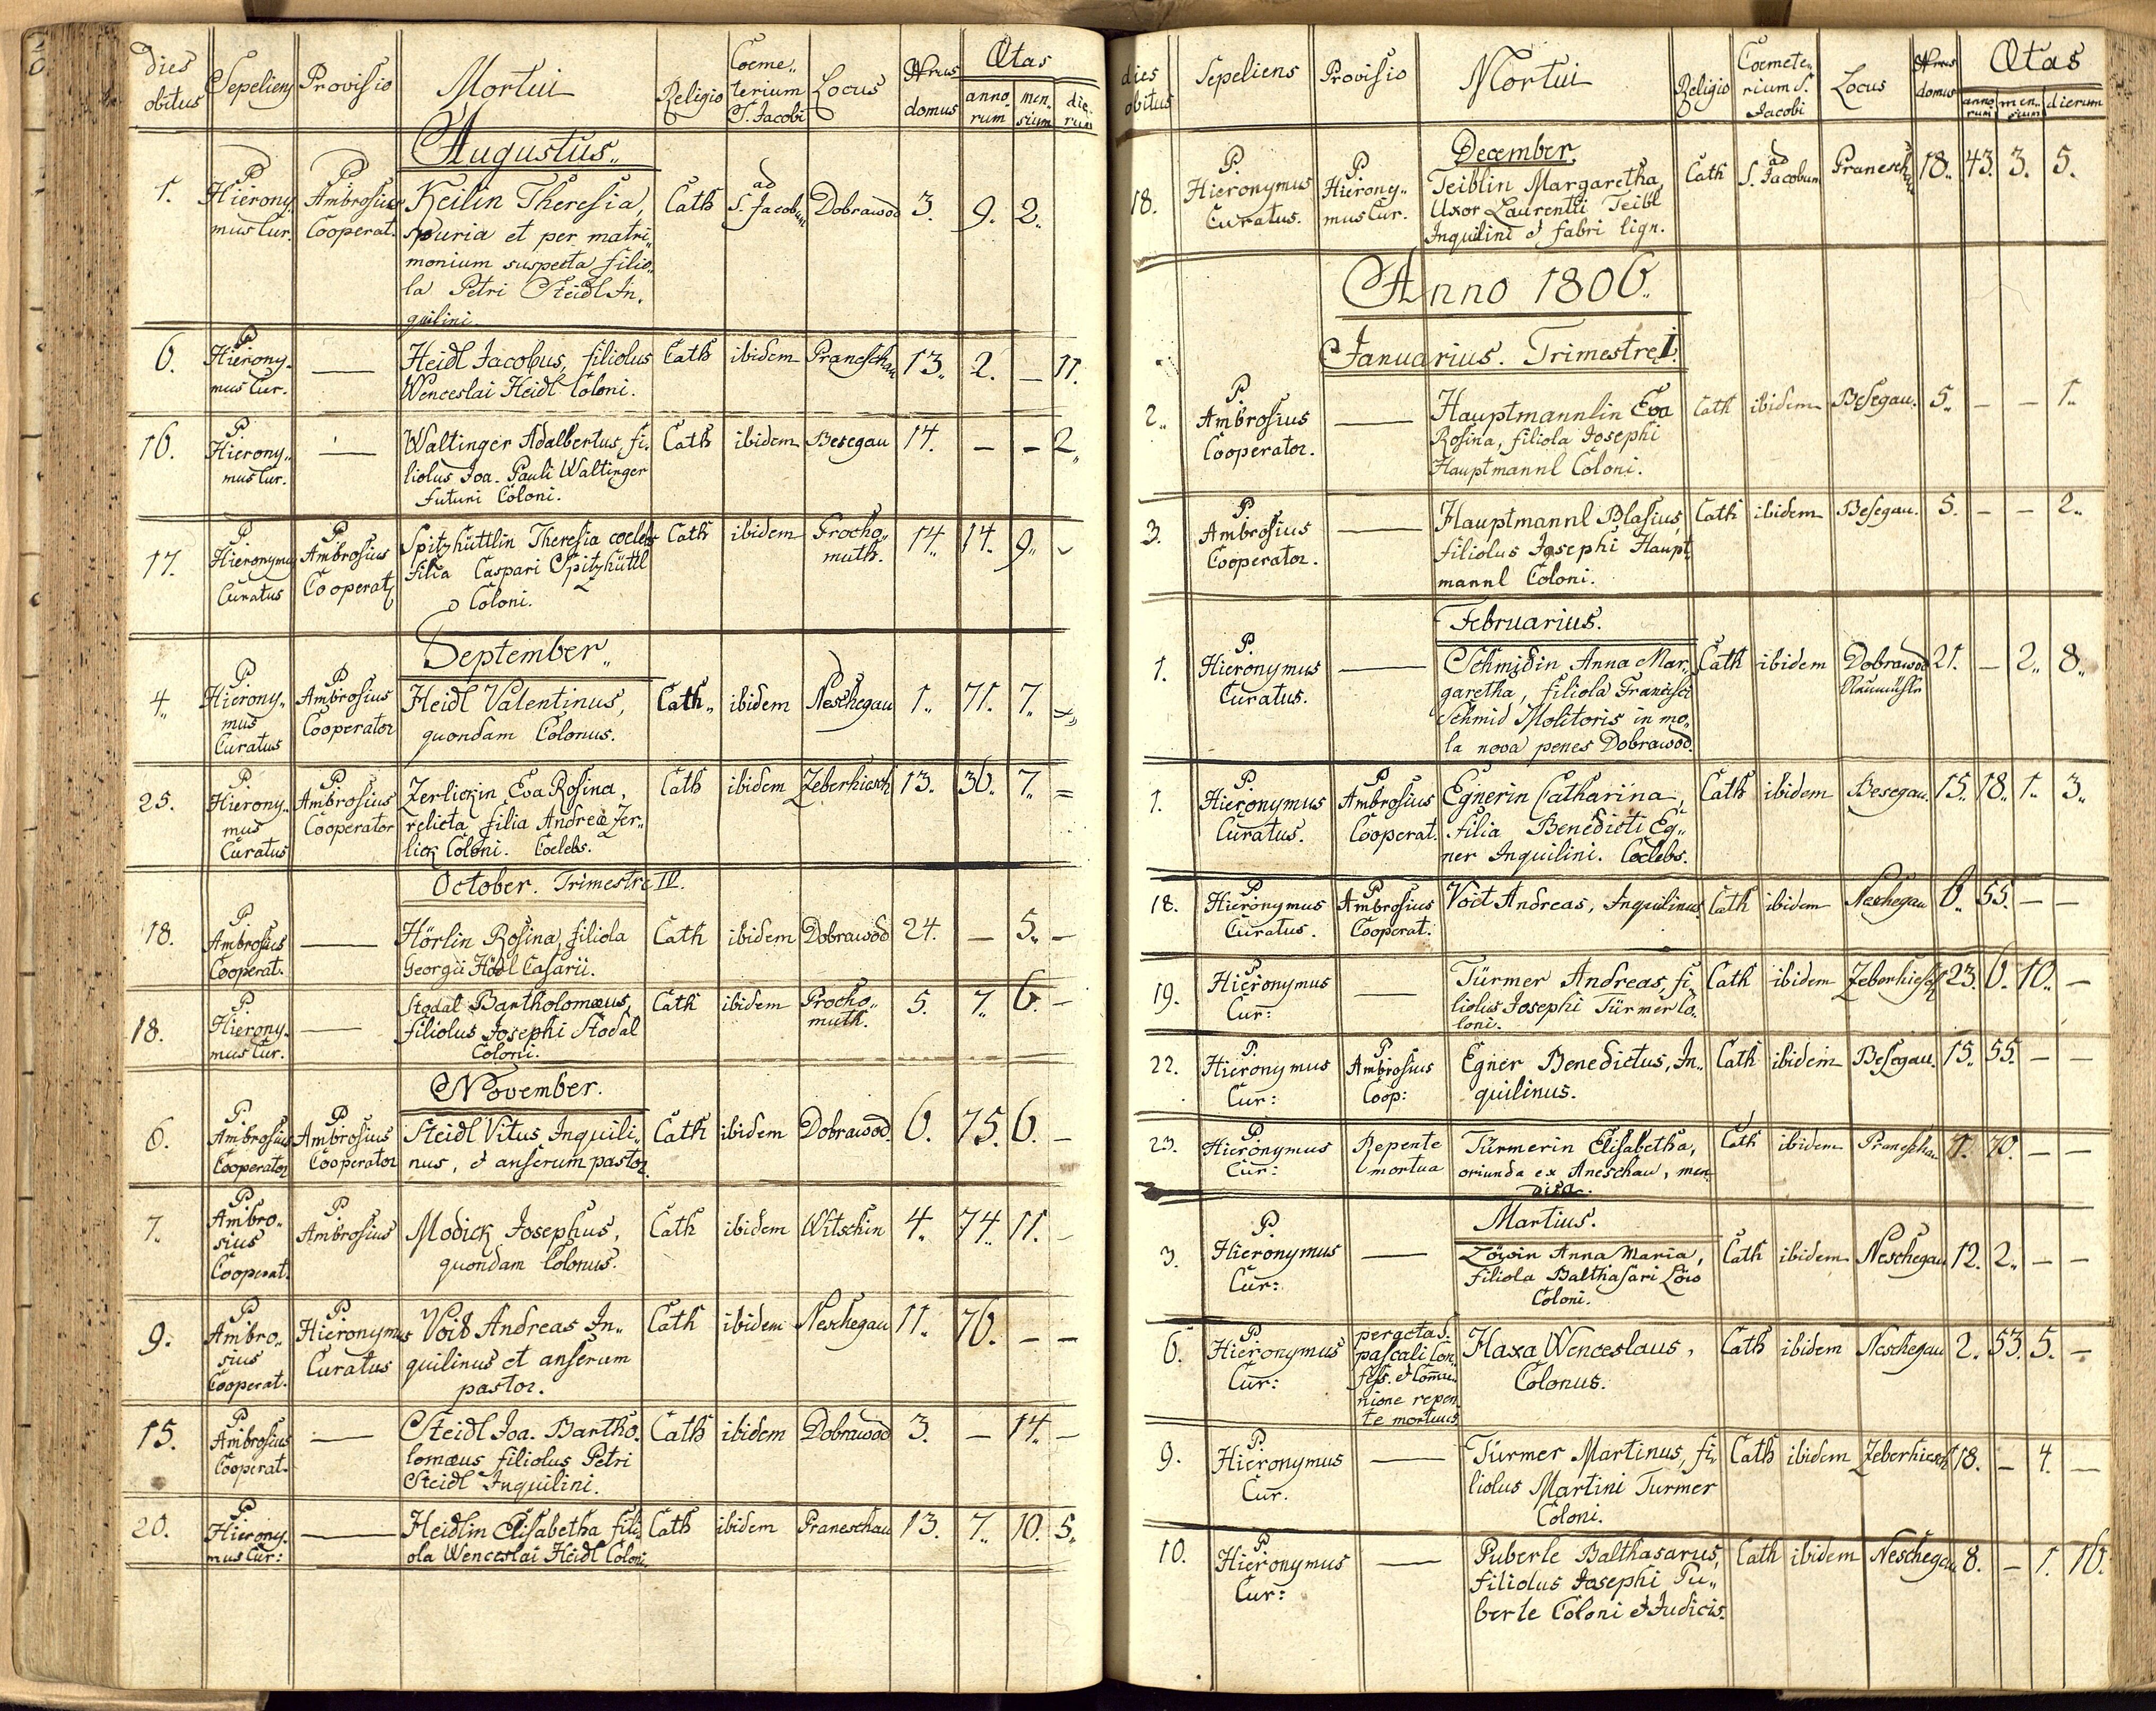 dies obitus Sepeliens Provisio Mortui Religio Coeme„terium S. Jacobi Locus Nrus domus Ætas annorum mensium dierum
Augustus„
1. P. Hierony„ P. Ambrosius Keilin Theresia, Cath ad S. Jacobum Dobrawod 3. 9. 2„
mus Cur. Cooperat. spuria et per matri„
monium suspecta filio„
la Petri Steidl In„
quilini.
6. P. Hierony„ — Heidl Jacobus, filiolus Cath ibidem Praneschau 13„ 2. — 11.
mus Cur. Wenceslai Heidl Coloni.
16. P. Hierony„ — Waltinger Adalbertus, fi„ Cath ibidem Besegau 14. — — 2„
mus Cur. liolus Joa. Pauli Waltinger
futuri Coloni.
17. P. Hieronymus P. Ambrosius Spitzhüttlin Theresia coelebs Cath ibidem Procho„ 14„ 14. 9„
Curatus Cooperat. filia Caspari Spitzhüttl muth.
Coloni.
September„
4„ P. Hierony„ P. Ambrosius Heidl Valentinus, Cath„ ibidem Neschegau 1„ 71. 7„
mus Cooperator quondam Colonus.
Curatus
25. P. Hierony„ P. Ambrosius Zerlickin Eva Rosina, Cath ibidem Zeberhiesch 13. 36. 7„ =
mus Cooperator relicta filia Andreæ Zer„
Curatus lick Coloni. Coelebs.
October. Trimestre IV.
18. P. Ambrosius — Hörlin Rosina, filiola Cath ibidem Dobrawod 24. — 5„ —
Cooperat. Georgii Hödl Casarii.
18. P. Hierony„ — Stodal Bartholomæus, Cath ibidem Procho„ 5. 7„ 6. —
mus Cur. filiolus Josephi Stodal muth.
Coloni.
November.
6. P. Ambrosius P. Ambrosius Steidl Vitus, Inquili„ Cath ibidem Dobrawod. 6. 75. 6. —
Cooperator Cooperator nus, et anserum pastor.
7. P. Ambro„ P. Ambrosius Modick Josephus, Cath ibidem Witschin 4„ 74„ 11. —
sius quondam Colonus.
Cooperat.
9. P. Ambro„ P. Hieronymus Voit Andreas In„ Cath ibidem Neschegau 11. 76. — —
sius Curatus quilinus et anserum
Cooperat. pastor.
15. P. Ambrosius — Steidl Joa. Bartho„ Cath ibidem Dobrawod 3. — 14„ —
Cooperat. lomæus filiolus Petri
Steidl Inquilini.
20. P. Hierony„ — Heidlin Elisabetha fili„ Cath ibidem Praneschau 13. 7„ 10. 5„
mus Cur: ola Wenceslai Heidl Coloni.
dies obitus Sepeliens Provisio Mortui Religio Coemete„rium S. Jacobi Locus Nrus domus Ætas annorum mensium dierum
December.
18. P. Hieronymus P. Hierony„ Teiblin Margaretha, Cath ad S. Jacobum Praneschau 18„ 43. 3. 5.
Curatus. mus Cur. Uxor Laurentii Teibl
Inquilini et fabri lign.
Anno 1806„
Januarius. Trimestre I.
2„ P. Ambrosius — Hauptmannlin Eva Cath ibidem Besegau. 5„ — — 1„
Cooperator. Rosina, filiola Josephi
Hauptmannl Coloni.
3. P. Ambrosius — Hauptmannl Blasius, Cath ibidem Besegau. 5. — — 2„
Cooperator. filiolus Josephi Haupt„
mannl Coloni.
Februarius.
1. P. Hieronymus — Schmidin Anna Mar„ Cath ibidem Dobrawod 21. — 2„ 8„
Curatus. garetha, filiola Francisci Neumühle
Schmid Molitoris in mo„
la nova penes Dobrawod.
1. P. Hieronymus P. Ambrosius Egnerin Catharina, Cath ibidem Besegau. 15„ 18„ 1„ 3„
Curatus. Cooperat. filia Benedicti Eg„
ner Inquilini. Coelebs.
18. P. Hieronymus P. Ambrosius Voit Andreas, Inquilinus Cath ibidem Neshegau 6„ 55. — —
Curatus. Cooperat.
19. P. Hieronymus — Türmer Andreas, fi„ Cath ibidem Zeberhiesch 23. 6. 10„ —
Cur: liolus Josephi Türmer Co„
loni.
22. P. Hieronymus P. Ambrosius Egner Benedictus, In„ Cath ibidem Besegau. 15. 55. — —
Cur: Coop: quilinus.
23. P. Hieronymus Repente Türmerin Elisabetha, Cath ibidem Praneschau 70. — —
Cur: mortua oriunda ex Aneschau, men„
dica.
Martius.
3. P. Hieronymus — Löwin Anna Maria, Cath ibidem Neschegau 12. 2„ — —
Cur: filiola Balthasari Löw
Coloni.
6. P. Hieronymus peracta S. Haxa Wenceslaus, Cath ibidem Neschegau 2. 53. 5. —
Cur: pascali Con„ Colonus.
fess. et Commu„
nione repen„
te mortuus
9. P. Hieronymus — Türmer Martinus, fi„ Cath ibidem Zeberhiesch 18. — 4. —
Cur. liolus Martini Turmer
Coloni.
10. P. Hieronymus — Puberle Balthasarus, Cath ibidem Neschegau 8. — 1. 16.
Cur: filiolus Josephi Pu„
berle Coloni et Judicis.